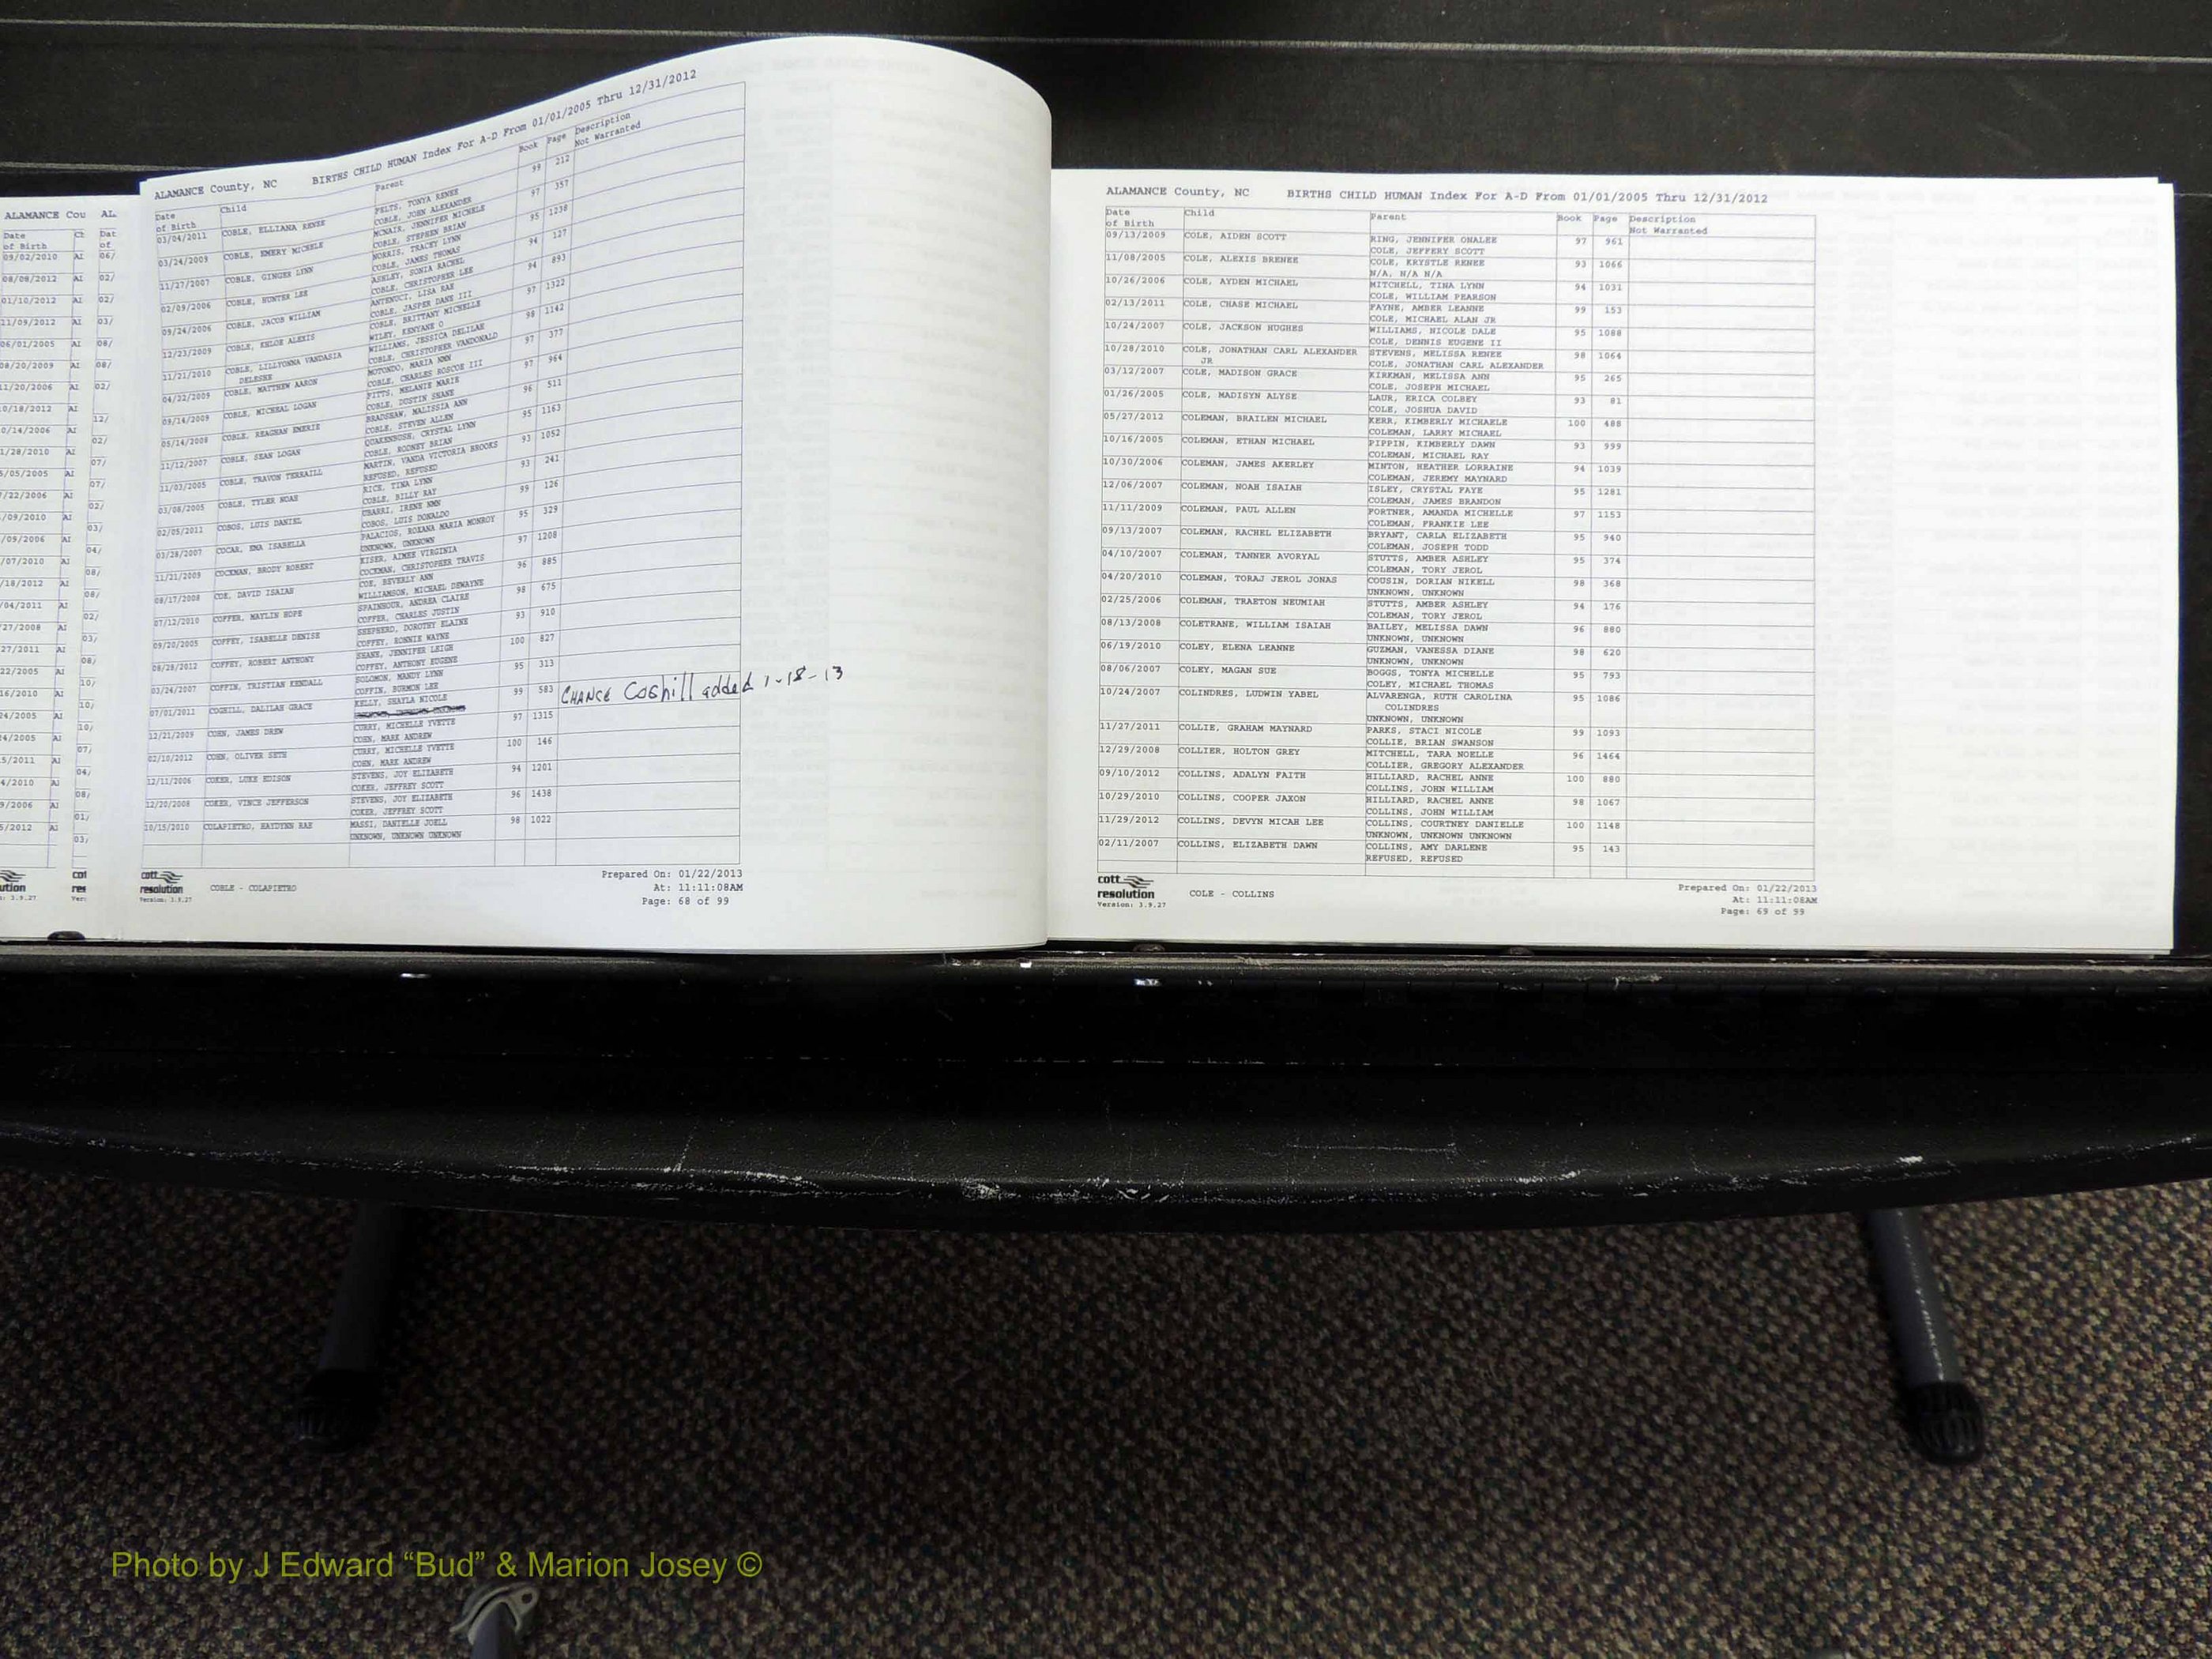 ALAMANCE Cou
Date
of Birth
09/02/2010
08/08/2012
01/10/2012
11/09/2012
06/01/2005
08/20/2009
11/20/2006
ALAMANCE County, NC BIRTHS CHILD HUMAN Index For A-D From 01/01/2005 Thru 12/31/2012
Date of Birth Child Parent Book Page Description Not Warranted
03/04/2011 COBLE, ELLIANA RENEE FELTS, TONYA RENEE 99 212
COBLE, JOHN ALEXANDER
03/24/2009 COBLE, EMERY MICHELE MCNAIR, JENNIFER MICHELE 97 357
COBLE, STEPHEN BRIAN
11/27/2007 COBLE, GINGER LYNN NORRIS, TRACEY LYNN 95 1238
COBLE, JAMES THOMAS
02/09/2006 COBLE, HUNTER LEE ASHLEY, SONIA RACHEL 94 127
COBLE, CHRISTOPHER LEE
09/24/2006 COBLE, JACOB WILLIAM ANTENUCI, LISA RAE 94 893
COBLE, JASPER DANE III
12/23/2009 COBLE, KHLOE ALEXIS COBLE, BRITTANY MICHELLE 97 1322
WILEY, KENYANE O
11/21/2010 COBLE, LILLYONNA VANDASIA WILLIAMS, JESSICA DELILAH 98 1142
DELESHE COBLE, CHRISTOPHER VANDONALD
04/22/2009 COBLE, MATTHEW AARON MOTONDO, MARIA NMN 97 377
COBLE, CHARLES ROSCOE III
09/14/2009 COBLE, MICHEAL LOGAN PITTS, MELANIE MARIE 97 964
COBLE, DUSTIN SHANE
05/14/2008 COBLE, REAGHAN EMERIE BRADSHAW, MALISSIA ANN 96 511
COBLE, STEVEN ALLEN
11/12/2007 COBLE, SEAN LOGAN QUAKENBUSH, CRYSTAL LYNN 95 1163
COBLE, RODNEY BRIAN
11/03/2005 COBLE, TRAVON TERRAILL MARTIN, VANDA VICTORIA BROOKS 93 1052
REFUSED, REFUSED
03/08/2005 COBLE, TYLER NOAH RICE, TINA LYNN 93 241
COBLE, BILLY RAY
02/05/2011 COBOS, LUIS DANIEL UBARRI, IRENE NMN 99 126
COBOS, LUIS DONALDO
03/28/2007 COCAR, EMA ISABELLA PALACIOS, ROXANA MARIA MONROY 95 329
UNKNOWN, UNKNOWN
11/21/2009 COCKMAN, BRODY ROBERT KISER, AIMEE VIRGINIA 97 1208
COCKMAN, CHRISTOPHER TRAVIS
08/17/2008 COE, DAVID ISAIAH COE, BEVERLY ANN 96 885
WILLIAMSON, MICHAEL DEWAYNE
07/12/2010 COFFER, MAYLIN HOPE SPAINHOUR, ANDREA CLAIRE 98 675
COFFER, CHARLES JUSTIN
09/20/2005 COFFEY, ISABELLE DENISE SHEPHERD, DOROTHY ELAINE 93 910
COFFEY, RONNIE WAYNE
08/28/2012 COFFEY, ROBERT ANTHONY SHANE, JENNIFER LEIGH 100 827
COFFEY, ANTHONY EUGENE
03/24/2007 COFFIN, TRISTIAN KENDALL SOLOMON, MANDY LYNN 95 313
COFFIN, BURMON LEE
07/01/2011 COGHILL, DALILAH GRACE KELLY, SHAYLA NICOLE 99 583 CHANCE Coghill added 1-18-13
12/21/2009 COHN, JAMES DREW CURRY, MICHELLE YVETTE 97 1315
COHN, MARK ANDREW
02/10/2012 COHN, OLIVER SETH CURRY, MICHELLE YVETTE 100 146
COHN, MARK ANDREW
12/11/2006 COKER, LUKE EDISON STEVENS, JOY ELIZABETH 94 1201
COKER, JEFFREY SCOTT
12/20/2008 COKER, VINCE JEFFERSON STEVENS, JOY ELIZABETH 96 1438
COKER, JEFFREY SCOTT
10/15/2010 COLAPIETRO, HAYDYNN RAE MASSI, DANIELLE JOELL 98 1022
UNKNOWN, UNKNOWN UNKNOWN
cott
resolution COBLE - COLAPIETRO
Version: 3.9.27
Prepared On: 01/22/2013
At: 11:11:08AM
Page: 68 of 99
ALAMANCE County, NC BIRTHS CHILD HUMAN Index For A-D From 01/01/2005 Thru 12/31/2012
Date of Birth Child Parent Book Page Description Not Warranted
09/13/2009 COLE, AIDEN SCOTT RING, JENNIFER ONALEE 97 961
COLE, JEFFERY SCOTT
11/08/2005 COLE, ALEXIS BRENEE COLE, KRYSTLE RENEE 93 1066
N/A, N/A N/A
10/26/2006 COLE, AYDEN MICHAEL MITCHELL, TINA LYNN 94 1031
COLE, WILLIAM PEARSON
02/13/2011 COLE, CHASE MICHAEL PAYNE, AMBER LEANNE 99 153
COLE, MICHAEL ALAN JR
10/24/2007 COLE, JACKSON HUGHES WILLIAMS, NICOLE DALE 95 1088
COLE, DENNIS EUGENE II
10/28/2010 COLE, JONATHAN CARL ALEXANDER STEVENS, MELISSA RENEE 98 1064
JR COLE, JONATHAN CARL ALEXANDER
03/12/2007 COLE, MADISON GRACE KIRKMAN, MELISSA ANN 95 265
COLE, JOSEPH MICHAEL
01/26/2005 COLE, MADISYN ALYSE LAUR, ERICA COLBEY 93 81
COLE, JOSHUA DAVID
05/27/2012 COLEMAN, BRAILEN MICHAEL KERR, KIMBERLY MICHAELE 100 488
COLEMAN, LARRY MICHAEL
10/16/2005 COLEMAN, ETHAN MICHAEL PIPPIN, KIMBERLY DAWN 93 999
COLEMAN, MICHAEL RAY
10/30/2006 COLEMAN, JAMES AKERLEY MINTON, HEATHER LORRAINE 94 1039
COLEMAN, JEREMY MAYNARD
12/06/2007 COLEMAN, NOAH ISAIAH ISLEY, CRYSTAL FAYE 95 1281
COLEMAN, JAMES BRANDON
11/11/2009 COLEMAN, PAUL ALLEN FORTNER, AMANDA MICHELLE 97 1153
COLEMAN, FRANKIE LEE
09/13/2007 COLEMAN, RACHEL ELIZABETH BRYANT, CARLA ELIZABETH 95 940
COLEMAN, JOSEPH TODD
04/10/2007 COLEMAN, TANNER AVORYAL STUTTS, AMBER ASHLEY 95 374
COLEMAN, TORY JEROL
04/20/2010 COLEMAN, TORAJ JEROL JONAS COUSIN, DORIAN NIKELL 98 368
UNKNOWN, UNKNOWN
02/25/2006 COLEMAN, TRAETON NEUMIAH STUTTS, AMBER ASHLEY 94 176
COLEMAN, TORY JEROL
08/13/2008 COLETRANE, WILLIAM ISAIAH BAILEY, MELISSA DAWN 96 880
UNKNOWN, UNKNOWN
06/19/2010 COLEY, ELENA LEANNE GUZMAN, VANESSA DIANE 98 620
UNKNOWN, UNKNOWN
08/06/2007 COLEY, MAGAN SUE BOGGS, TONYA MICHELLE 95 793
COLEY, MICHAEL THOMAS
10/24/2007 COLINDRES, LUDWIN YABEL ALVARENGA, RUTH CAROLINA 95 1086
COLINDRES
UNKNOWN, UNKNOWN
11/27/2011 COLLIE, GRAHAM MAYNARD PARKS, STACI NICOLE 99 1093
COLLIE, BRIAN SWANSON
12/29/2008 COLLIER, HOLTON GREY MITCHELL, TARA NOELLE 96 1464
COLLIER, GREGORY ALEXANDER
09/10/2012 COLLINS, ADALYN FAITH HILLIARD, RACHEL ANNE 100 880
COLLINS, JOHN WILLIAM
10/29/2010 COLLINS, COOPER JAXON HILLIARD, RACHEL ANNE 98 1067
COLLINS, JOHN WILLIAM
11/29/2012 COLLINS, DEVYN MICAH LEE COLLINS, COURTNEY DANIELLE 100 1148
UNKNOWN, UNKNOWN UNKNOWN
02/11/2007 COLLINS, ELIZABETH DAWN COLLINS, AMY DARLENE 95 143
REFUSED, REFUSED
cott
resolution COLE - COLLINS
Version: 3.9.27
Prepared On: 01/22/2013
At: 11:11:08AM
Page: 69 of 99
Photo by J Edward “Bud” & Marion Josey ©